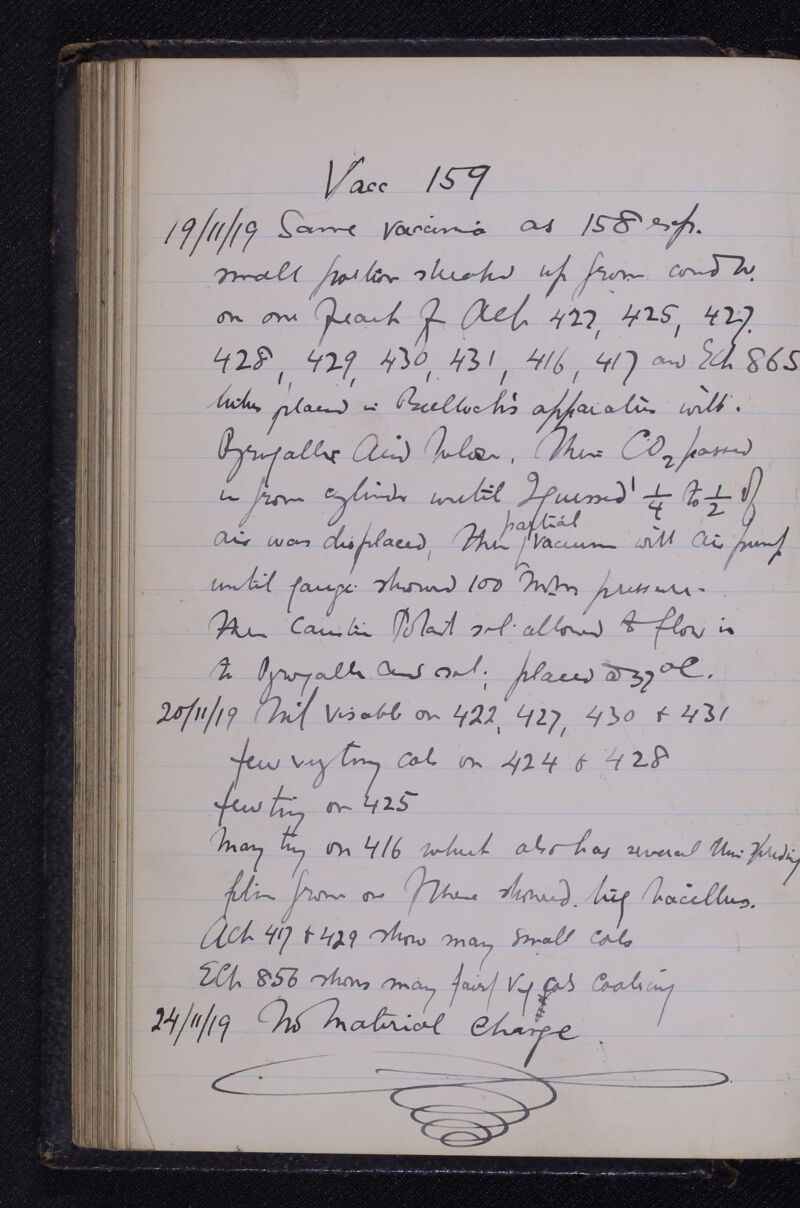 Vacc 159
19/11/19 Same vaccinia as 158 exp.
small portion streaked up from cond W.
on one of each of Ach 422, 425, 427,
428, 429, 430, 431, 416, 417 and Ech 865
tubes placed in Bulloch's apparatus with
Pyrogallic Acid below. Then CO2 passed
in from cylinder until I guessed 1/4 to 1/2 of
air was displaced, then partial vacuum with air pump
until gauge showed 100 m/m pressure.
Then Caustic Potash sol. allowed to flow in
to Pyrogallic Acid sol; placed @ 37°C.
20/11/19 Nil visable on 422, 427, 430 + 431
few very tiny cols on 424 & 428
few tiny on 425
Many tiny on 416 which also has several thin spreading
film from one of these showed big bacillus.
Ach 417 + 429 show many small cols
Ech 856 shows many cols Coalescing
24/11/19 No material change